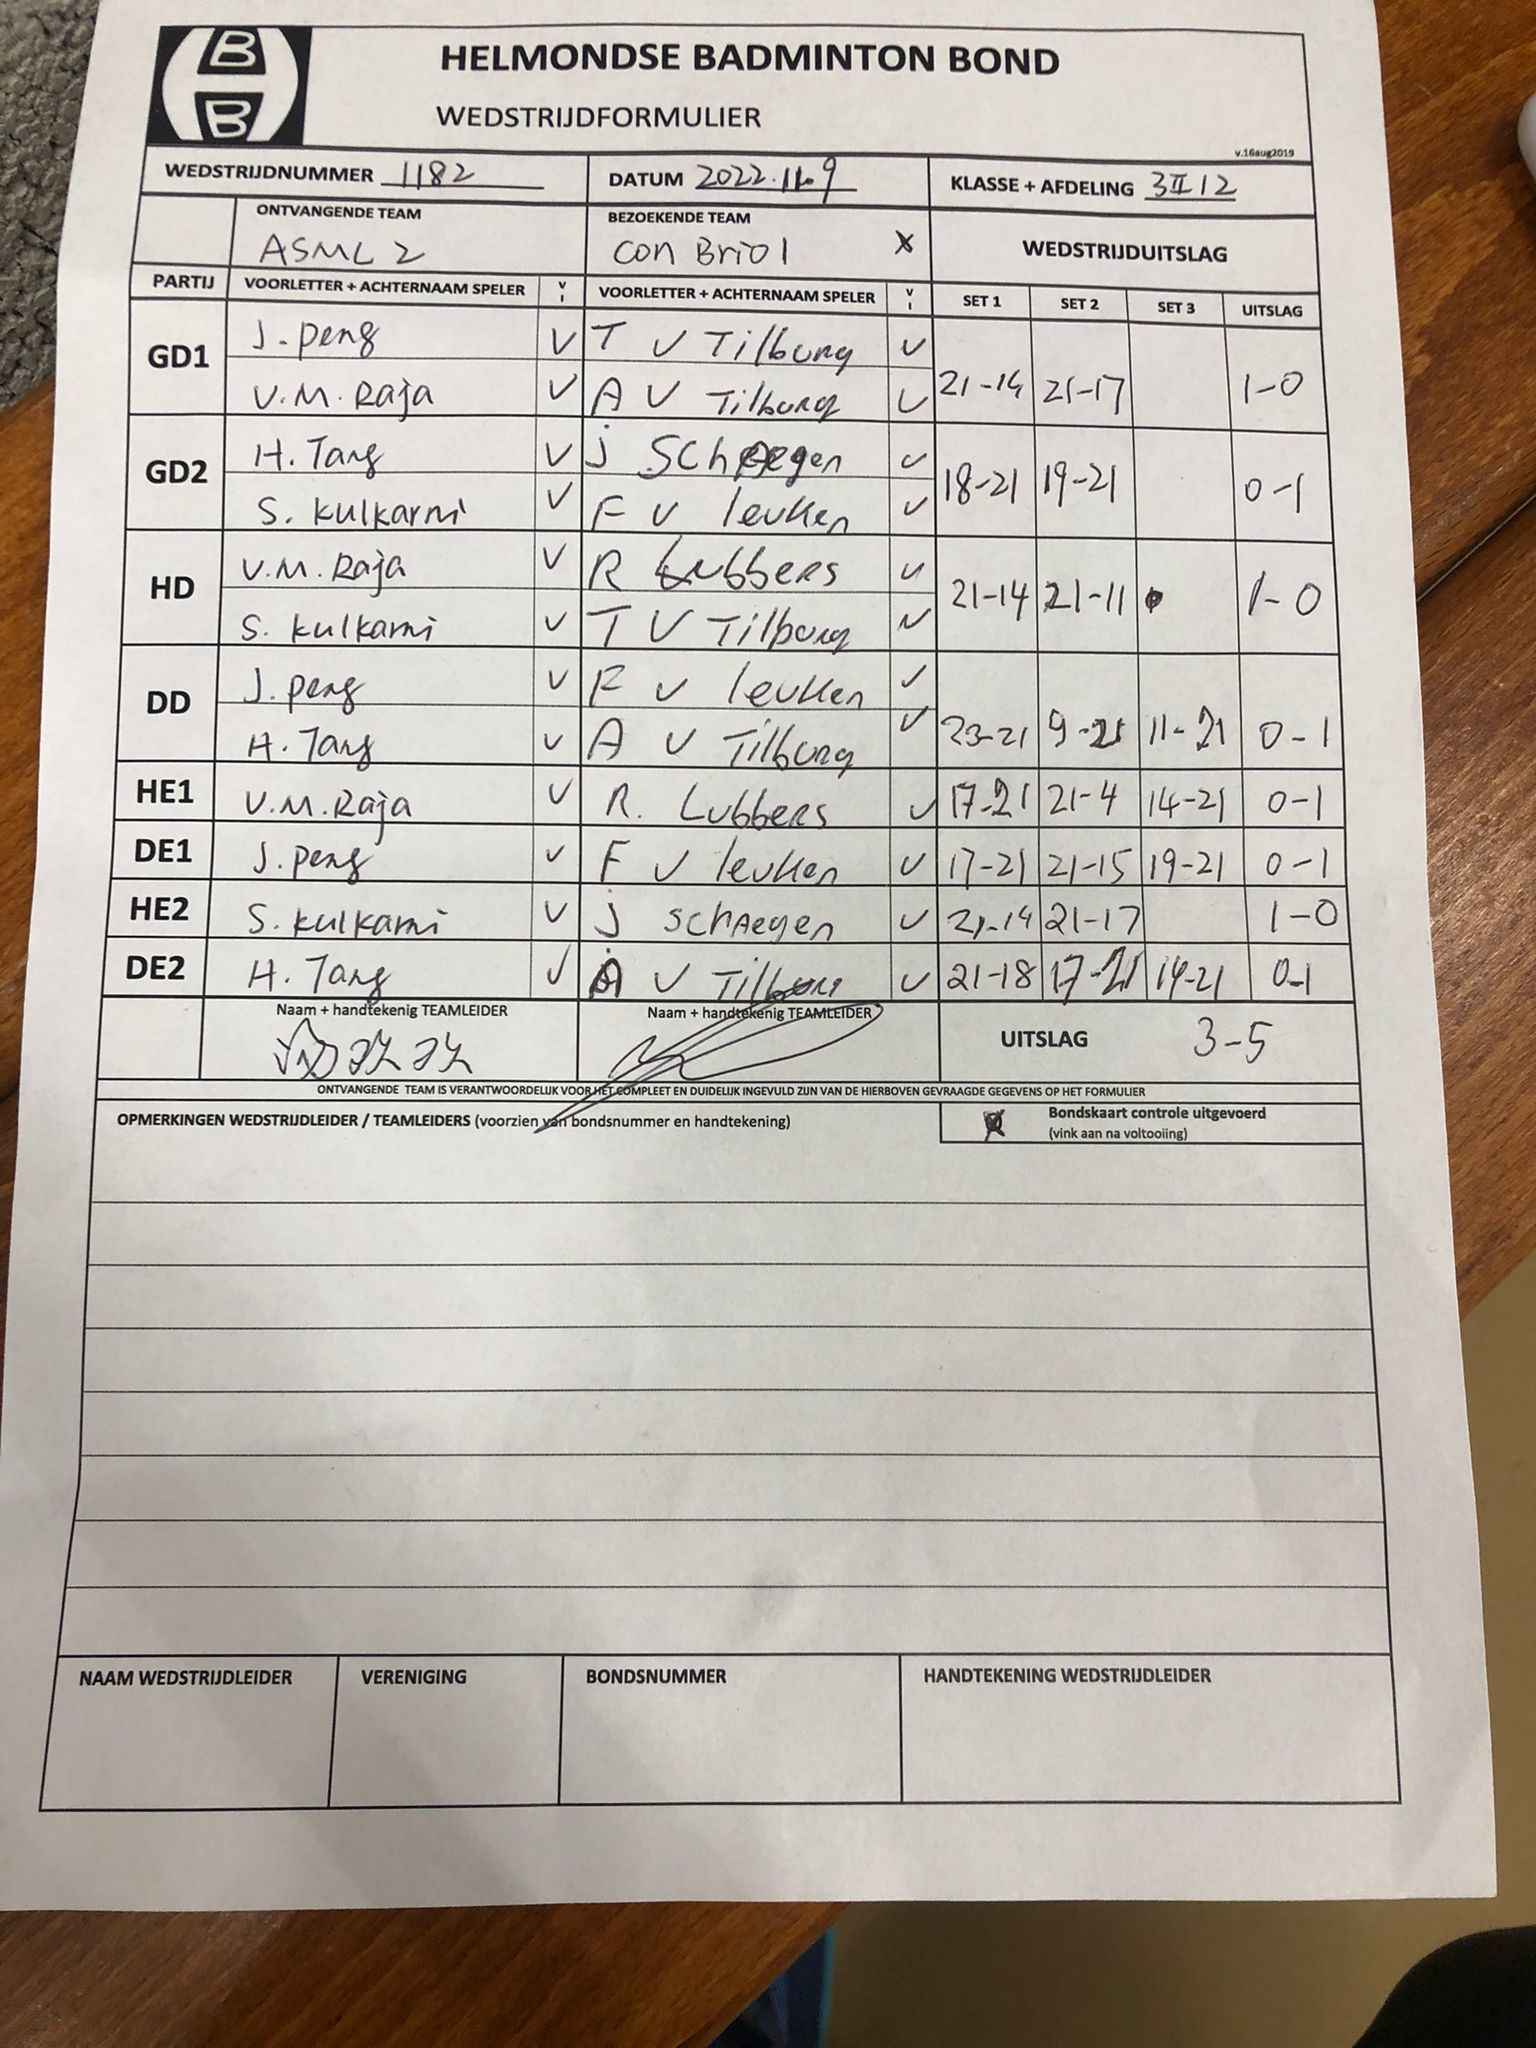 B
B
HELMONDSE BADMINTON BOND
WEDSTRIJDFORMULIER
v.16aug2019
WEDSTRIJDNUMMER 1182 DATUM 2022.11.9 KLASSE + AFDELING 3II12
ONTVANGENDE TEAM BEZOEKENDE TEAM
ASML 2 Con Brio 1 x WEDSTRIJDUITSLAG
PARTIJ VOORLETTER + ACHTERNAAM SPELER V I VOORLETTER + ACHTERNAAM SPELER V I SET 1 SET 2 SET 3 UITSLAG
GD1 J. peng V T V Tilburg V
V.M. Raja V A V Tilburg V 21-14 21-17 1-0
GD2 H. Tang V J SchAegen V
S. Kulkarni V F V leuken V 18-21 19-21 0-1
HD V.M. Raja V R Lubbers V
S. Kulkarni V T V Tilburg V 21-14 21-11 1-0
DD J. peng V F V leuken V
H. Tang V A V Tilburg V 23-21 9-21 11-21 0-1
HE1 V.M. Raja V R. Lubbers V 17-21 21-4 14-21 0-1
DE1 J. peng V F V leuken V 17-21 21-15 19-21 0-1
HE2 S. Kulkarni V J SchAegen V 21-14 21-17 1-0
DE2 H. Tang V A V Tilburg V 21-18 17-21 14-21 0-1
Naam + handtekenig TEAMLEIDER Naam + handtekenig TEAMLEIDER
UITSLAG 3-5
ONTVANGENDE TEAM IS VERANTWOORDELIJK VOOR HET COMPLEET EN DUIDELIJK INGEVULD ZIJN VAN DE HIERBOVEN GEVRAAGDE GEGEVENS OP HET FORMULIER
OPMERKINGEN WEDSTRIJDLEIDER / TEAMLEIDERS (voorzien van bondsnummer en handtekening)
Bondskaart controle uitgevoerd
(vink aan na voltooiing)
NAAM WEDSTRIJDLEIDER VERENIGING BONDSNUMMER HANDTEKENING WEDSTRIJDLEIDER